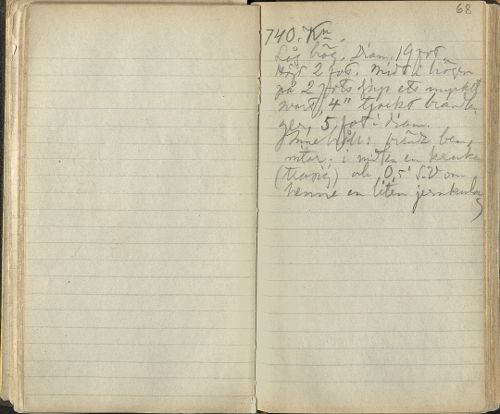 68
740. Kn.
Låg hög. Diam. 19 fot.
Höjd 2 fot. Midt i högen
på 2 fots djup ett mycket
svart, 4" tjockt brandla-
ger, 5 fot i diam.
Innehåll: brända ben
urnor; i midten en kruka
(trasig) och 0,5' S.V om
henne en liten jernkula